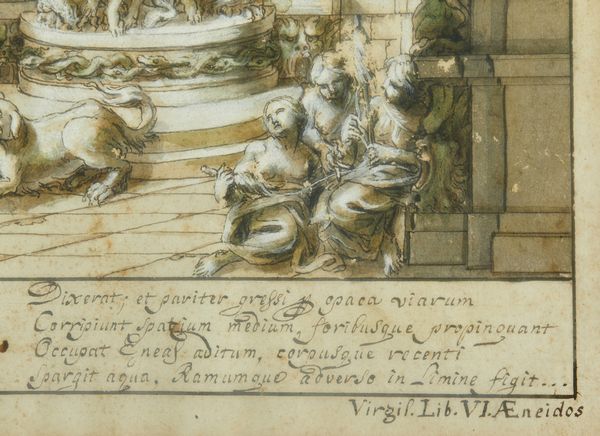 Dixerat, et pariter gressi p opaca viarum
Corripiunt spatium medium, foribusque propinquant
Occupat Eneas aditum, corpusque recenti
Spargit aqua, Ramumque adverso in Limine figit...
Virgil. Lib. VI. Æneidos